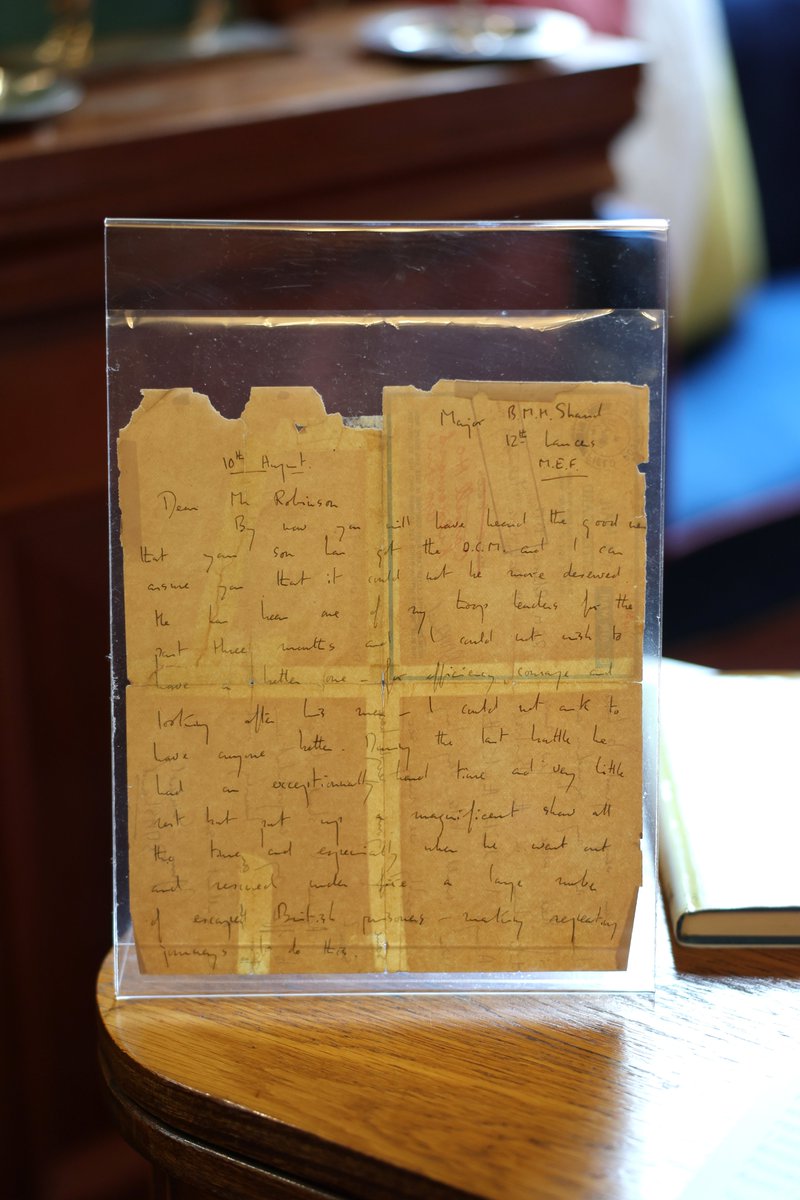 Major B.M.H. Shand
12th Lancers
M.E.F.
10th August.
Dear Mr Robinson
By now you will have heard the good news
that your son has got the D.C.M. and I can
assure you that it could not be more deserved
He has been one of my troop leaders for the
past three months and I could not wish to
have a better one – for efficiency, courage and
looking after his men – I could not ask to
have anyone better. During the last battle he
had an exceptionally hard time and very little
rest but put up a magnificent show all
the time and especially when he went out
and rescued under fire a large number
of escaped British prisoners – making repeated
journeys to do this.